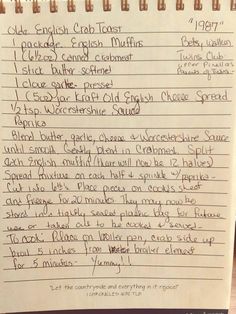 Olde English Crab Toast "1987"
1 package English Muffins Betsy
1 (6 1/2 oz) canned crabmeat Twins Club
1 stick butter softened
1 clove garlic - pressed Parents of Twins
1 (5oz) jar Kraft Old English Cheese Spread
1/2 tsp. Worcestershire Sauce
Paprika
Blend butter, garlic, cheese & Worcestershire Sauce
until smooth. Gently blend in crabmeat. Split
each English muffin (there will now be 12 halves)
Spread mixture on each half & sprinkle w/ paprika -
Cut into 6ths. Place pieces on cookie sheet
and freeze for 20 minutes. They may now be
stored in a tightly sealed plastic bag for future
use or taken out to be cooked & served -
To cook: Place on broiler pan, crab side up
broil 5 inches from broiler element
for 5 minutes - Yummy!!
"Let the countryside and everything in it rejoice!"
I CHRONICLES 16:32 TLB